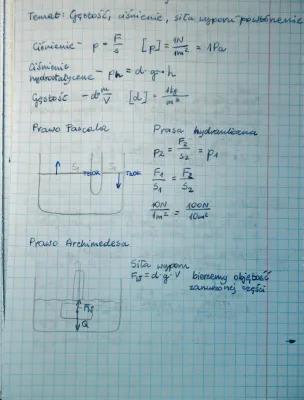 Temat: Gęstość, ciśnienie, siła wyporu powtórzenie
Ciśnienie - p = F/s [p] = 1N/m² = 1Pa
Ciśnienie
hydrostatyczne - ph = d·g·h
Gęstość - d = m/V [d] = 1kg/m³
Prawo Pascala
Prasa hydrauliczna
p₂ = F₂/s₂ = p₁
F₁/s₁ = F₂/s₂
10N/1m² = 100N/10m²
S₁ S₂
TŁOK TŁOK
Prawo Archimedesa
Siła wyporu
Fw = d·g·V bierzemy objętość
zanurzonej części
Fw
Q